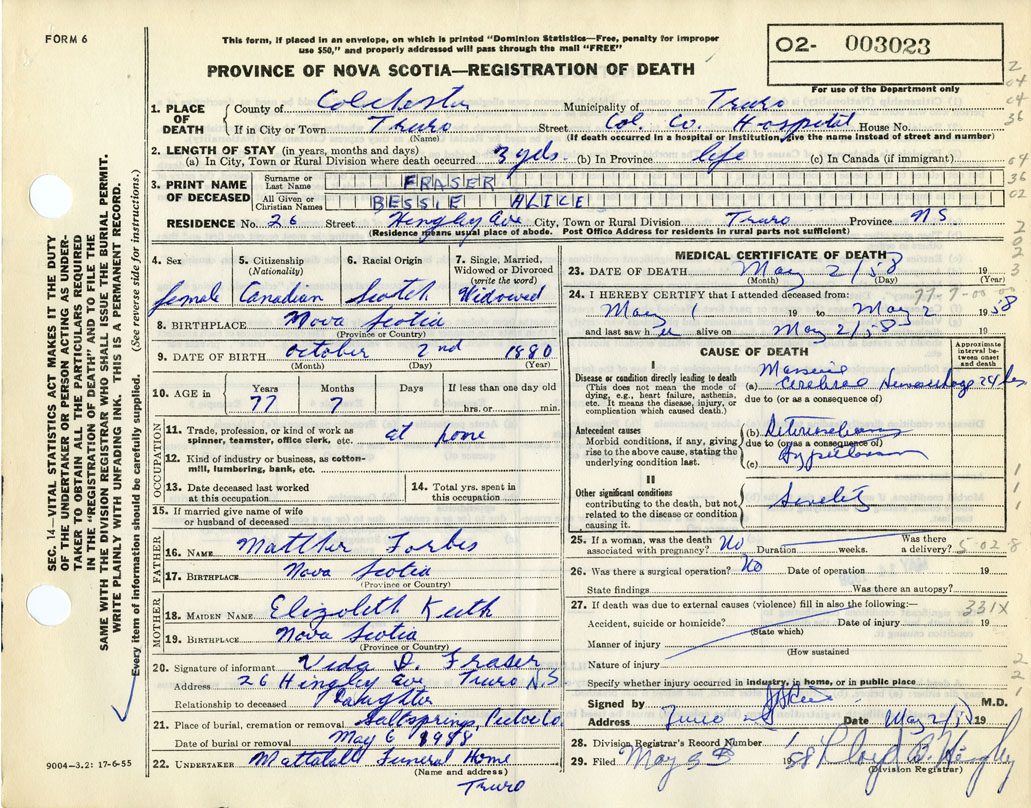 FORM 6
This form, if placed in an envelope, on which is printed "Dominion Statistics—Free, penalty for improper
use $50," and properly addressed will pass through the mail "FREE"
PROVINCE OF NOVA SCOTIA—REGISTRATION OF DEATH
02- 003023
For use of the Department only
1. PLACE OF DEATH
County of Colchester Municipality of Truro
If in City or Town Truro Street Col. Co. Hospital House No.
(Name) (If death occurred in a hospital or institution, give the name instead of street and number)
2. LENGTH OF STAY (in years, months and days)
(a) In City, Town or Rural Division where death occurred 3 yds. (b) In Province life (c) In Canada (if immigrant)
3. PRINT NAME OF DECEASED
Surname or Last Name FRASER
All Given or Christian Names BESSIE ALICE
RESIDENCE No. 26 Street Hingley Ave City, Town or Rural Division Truro Province N.S.
(Residence means usual place of abode. Post Office Address for residents in rural parts not sufficient)
4. Sex
female
5. Citizenship
(Nationality)
Canadian
6. Racial Origin
Scotch
7. Single, Married,
Widowed or Divorced
(write the word)
Widowed
8. BIRTHPLACE Nova Scotia
(Province or Country)
9. DATE OF BIRTH October 2nd 1880
(Month) (Day) (Year)
10. AGE in
Years Months Days If less than one day old
77 7 hrs. or min.
OCCUPATION
11. Trade, profession, or kind of work as
spinner, teamster, office clerk, etc. at home
12. Kind of industry or business, as cotton-
mill, lumbering, bank, etc.
13. Date deceased last worked
at this occupation
14. Total yrs. spent in
this occupation
15. If married give name of wife
or husband of deceased
FATHER
16. NAME Matther Forbes
17. BIRTHPLACE Nova Scotia
(Province or Country)
MOTHER
18. MAIDEN NAME Elizabeth Keith
19. BIRTHPLACE Nova Scotia
(Province or Country)
20. Signature of informant Vida D. Fraser
Address 26 Hingley Ave Truro N.S
Relationship to deceased Daughter
21. Place of burial, cremation or removal Saltsprings, Pictou Co
Date of burial or removal May 6
22. UNDERTAKER Mattatall Funeral Home
(Name and address)
Truro
9004—3.2: 17-6-55
MEDICAL CERTIFICATE OF DEATH
23. DATE OF DEATH May 2/58 19
(Month) (Day)
24. I HEREBY CERTIFY that I attended deceased from:
May 1 19 to May 2 1958
and last saw h er alive on May 2/58 19
CAUSE OF DEATH
Approximate
interval be-
tween onset
and death
I
Disease or condition directly leading to death
(This does not mean the mode of
dying, e.g., heart failure, asthenia,
etc. It means the disease, injury, or
complication which caused death.)
Massive
(a) Cerebral Hemorrhage 24 hrs
due to (or as a consequence of)
Antecedent causes
Morbid conditions, if any, giving
rise to the above cause, stating the
underlying condition last.
(b)
due to (or as a consequence of)
(c)
II
Other significant conditions
contributing to the death, but not
related to the disease or condition
causing it.
Senility
25. If a woman, was the death
associated with pregnancy? No Duration weeks. Was there
a delivery?
5-02-8
26. Was there a surgical operation? No Date of operation 19
State findings Was there an autopsy?
27. If death was due to external causes (violence) fill in also the following:—
331X
Accident, suicide or homicide? Date of injury 19
(State which)
Manner of injury
(How sustained
Nature of injury
Specify whether injury occurred in industry, in home, or in public place
Signed by M.D.
Address Truro NS Date May 2/58 19
28. Division Registrar's Record Number
29. Filed May 5 1958 Lloyd B. Hingley
(Division Registrar)
SEC. 14—VITAL STATISTICS ACT MAKES IT THE DUTY
OF THE UNDERTAKER OR PERSON ACTING AS UNDER-
TAKER TO OBTAIN ALL THE PARTICULARS REQUIRED
IN THE "REGISTRATION OF DEATH" AND TO FILE THE
SAME WITH THE DIVISION REGISTRAR WHO SHALL ISSUE THE BURIAL PERMIT.
WRITE PLAINLY WITH UNFADING INK. THIS IS A PERMANENT RECORD.
Every item of information should be carefully supplied. (See reverse side for instructions.)